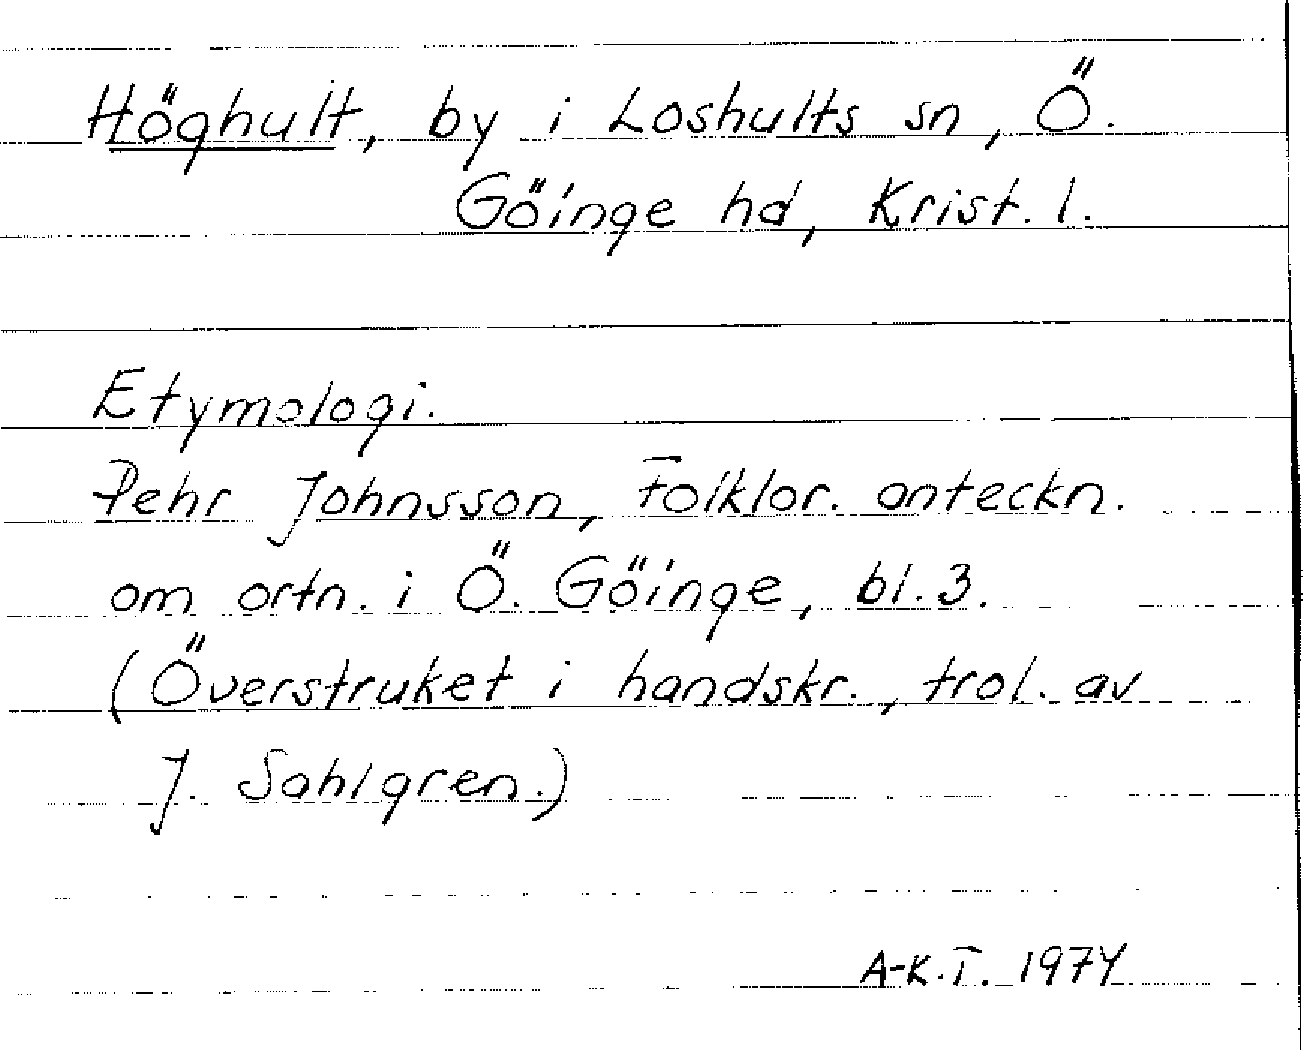 Höghult, by i Loshults sn, Ö.
Göinge hd, Krist. l.
Etymologi.
Pehr Johnsson, Folklor. anteckn.
om ortn. i Ö. Göinge, bl. 3.
(Överstruket i handskr., trol. av
J. Sahlgren.)
A-K.T. 1974